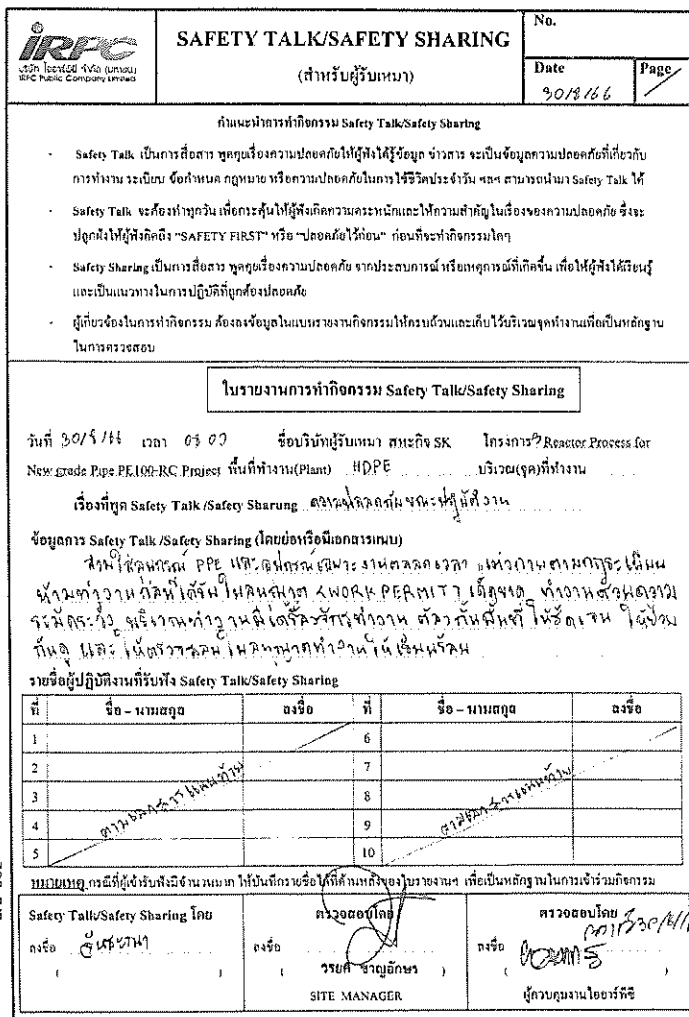 IRPC
บริษัท ไออาร์พีซี จำกัด (มหาชน)
IRPC Public Company Limited
SAFETY TALK/SAFETY SHARING
(สำหรับผู้รับเหมา)
No.
Date
30/8/66
Page
คำแนะนำการทำกิจกรรม Safety Talk/Safety Sharing
- Safety Talk เป็นการสื่อสาร พูดคุยเรื่องความปลอดภัยให้ผู้ฟังได้รู้ข้อมูล ข่าวสาร จะเป็นข้อมูลความปลอดภัยที่เกี่ยวกับ
การทำงาน ระเบียบ ข้อกำหนด กฎหมาย หรือความปลอดภัยในการใช้ชีวิตประจำวัน ฯลฯ สามารถนำมา Safety Talk ได้
- Safety Talk จะต้องทำทุกวัน เพื่อกระตุ้นให้ผู้ฟังเกิดความตระหนักและให้ความสำคัญในเรื่องของความปลอดภัย ซึ่งจะ
ปลูกฝังให้ผู้ฟังคิดถึง "SAFETY FIRST" หรือ "ปลอดภัยไว้ก่อน" ก่อนที่จะทำกิจกรรมใดๆ
- Safety Sharing เป็นการสื่อสาร พูดคุยเรื่องความปลอดภัย จากประสบการณ์ หรือเหตุการณ์ที่เกิดขึ้น เพื่อให้ผู้ฟังได้เรียนรู้
และเป็นแนวทางในการปฏิบัติที่ถูกต้องปลอดภัย
- ผู้เกี่ยวข้องในการทำกิจกรรม ต้องลงข้อมูลในแบบรายงานกิจกรรมให้ครบถ้วนและเก็บไว้บริเวณจุดทำงานเพื่อเป็นหลักฐาน
ในการตรวจสอบ
ใบรายงานการทำกิจกรรม Safety Talk/Safety Sharing
วันที่ 30/8/66 เวลา 08 00 ชื่อบริษัทผู้รับเหมา สหะกิจ SK โครงการ Reactor Process for
New grade Pipe PE100-RC Project พื้นที่ทำงาน(Plant) HDPE บริเวณ(จุด)ที่ทำงาน
เรื่องที่พูด Safety Talk /Safety Sharung ความปลอดภัยขณะปฏิบัติงาน
ข้อมูลการ Safety Talk /Safety Sharing (โดยย่อหรือมีเอกสารแนบ)
สวมใส่อุปกรณ์ PPE และอุปกรณ์เฉพาะงานตลอดเวลา
ห้ามทำงานก่อนได้รับใบอนุญาต <WORK PERMIT> เด็ดขาด ทำงานด้วยความ
ระมัดระวัง บริเวณทำงานมีเครื่องจักรทำงาน ต้องกั้นพื้นที่ ให้ชัดเจน
และ ให้ตรวจสอบใบอนุญาตทำงานให้เรียบร้อย
รายชื่อผู้ปฏิบัติงานที่รับฟัง Safety Talk/Safety Sharing
ที่ ชื่อ – นามสกุล ลงชื่อ ที่ ชื่อ – นามสกุล ลงชื่อ
1 6
2 7
3 ตามเอกสารแนบท้าย 8
4 9 ตามเอกสารแนบท้าย
5 10
หมายเหตุ กรณีที่ผู้เข้ารับฟังมีจำนวนมาก ให้บันทึกรายชื่อได้ที่ด้านหลังของใบรายงานฯ เพื่อเป็นหลักฐานในการเข้าร่วมกิจกรรม
Safety Talk/Safety Sharing โดย ตรวจสอบโดย ตรวจสอบโดย
ลงชื่อ ลงชื่อ ลงชื่อ
( ) ( วรยศ ชาญอักษร ) ( )
SITE MANAGER ผู้ควบคุมงานไออาร์พีซี